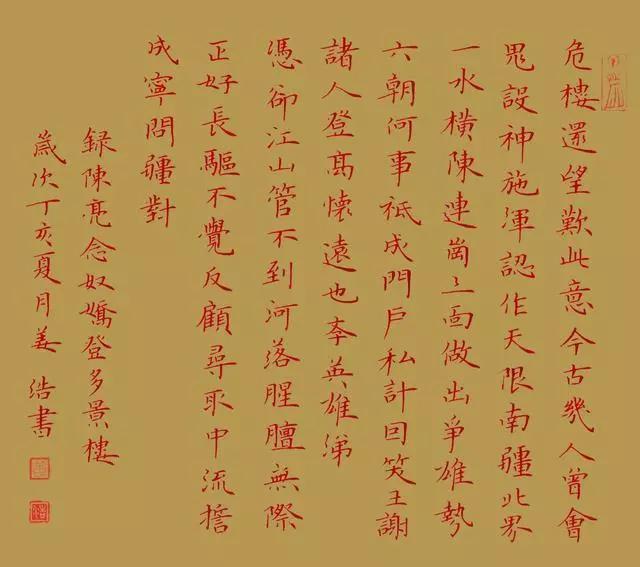 危樓還望歎此意今古幾人曾會
鬼設神施渾認作天限南疆北界
一水橫陳連崗三面做出爭雄勢
六朝何事祇成門戶私計因笑王謝
諸人登高懷遠也李英雄涕
憑卻江山管不到河落腥膻無際
正好長驅不覺反顧尋取中流
成寧問疆對
録陳亮念奴嬌登多景樓
歲次丁亥夏月姜浩書